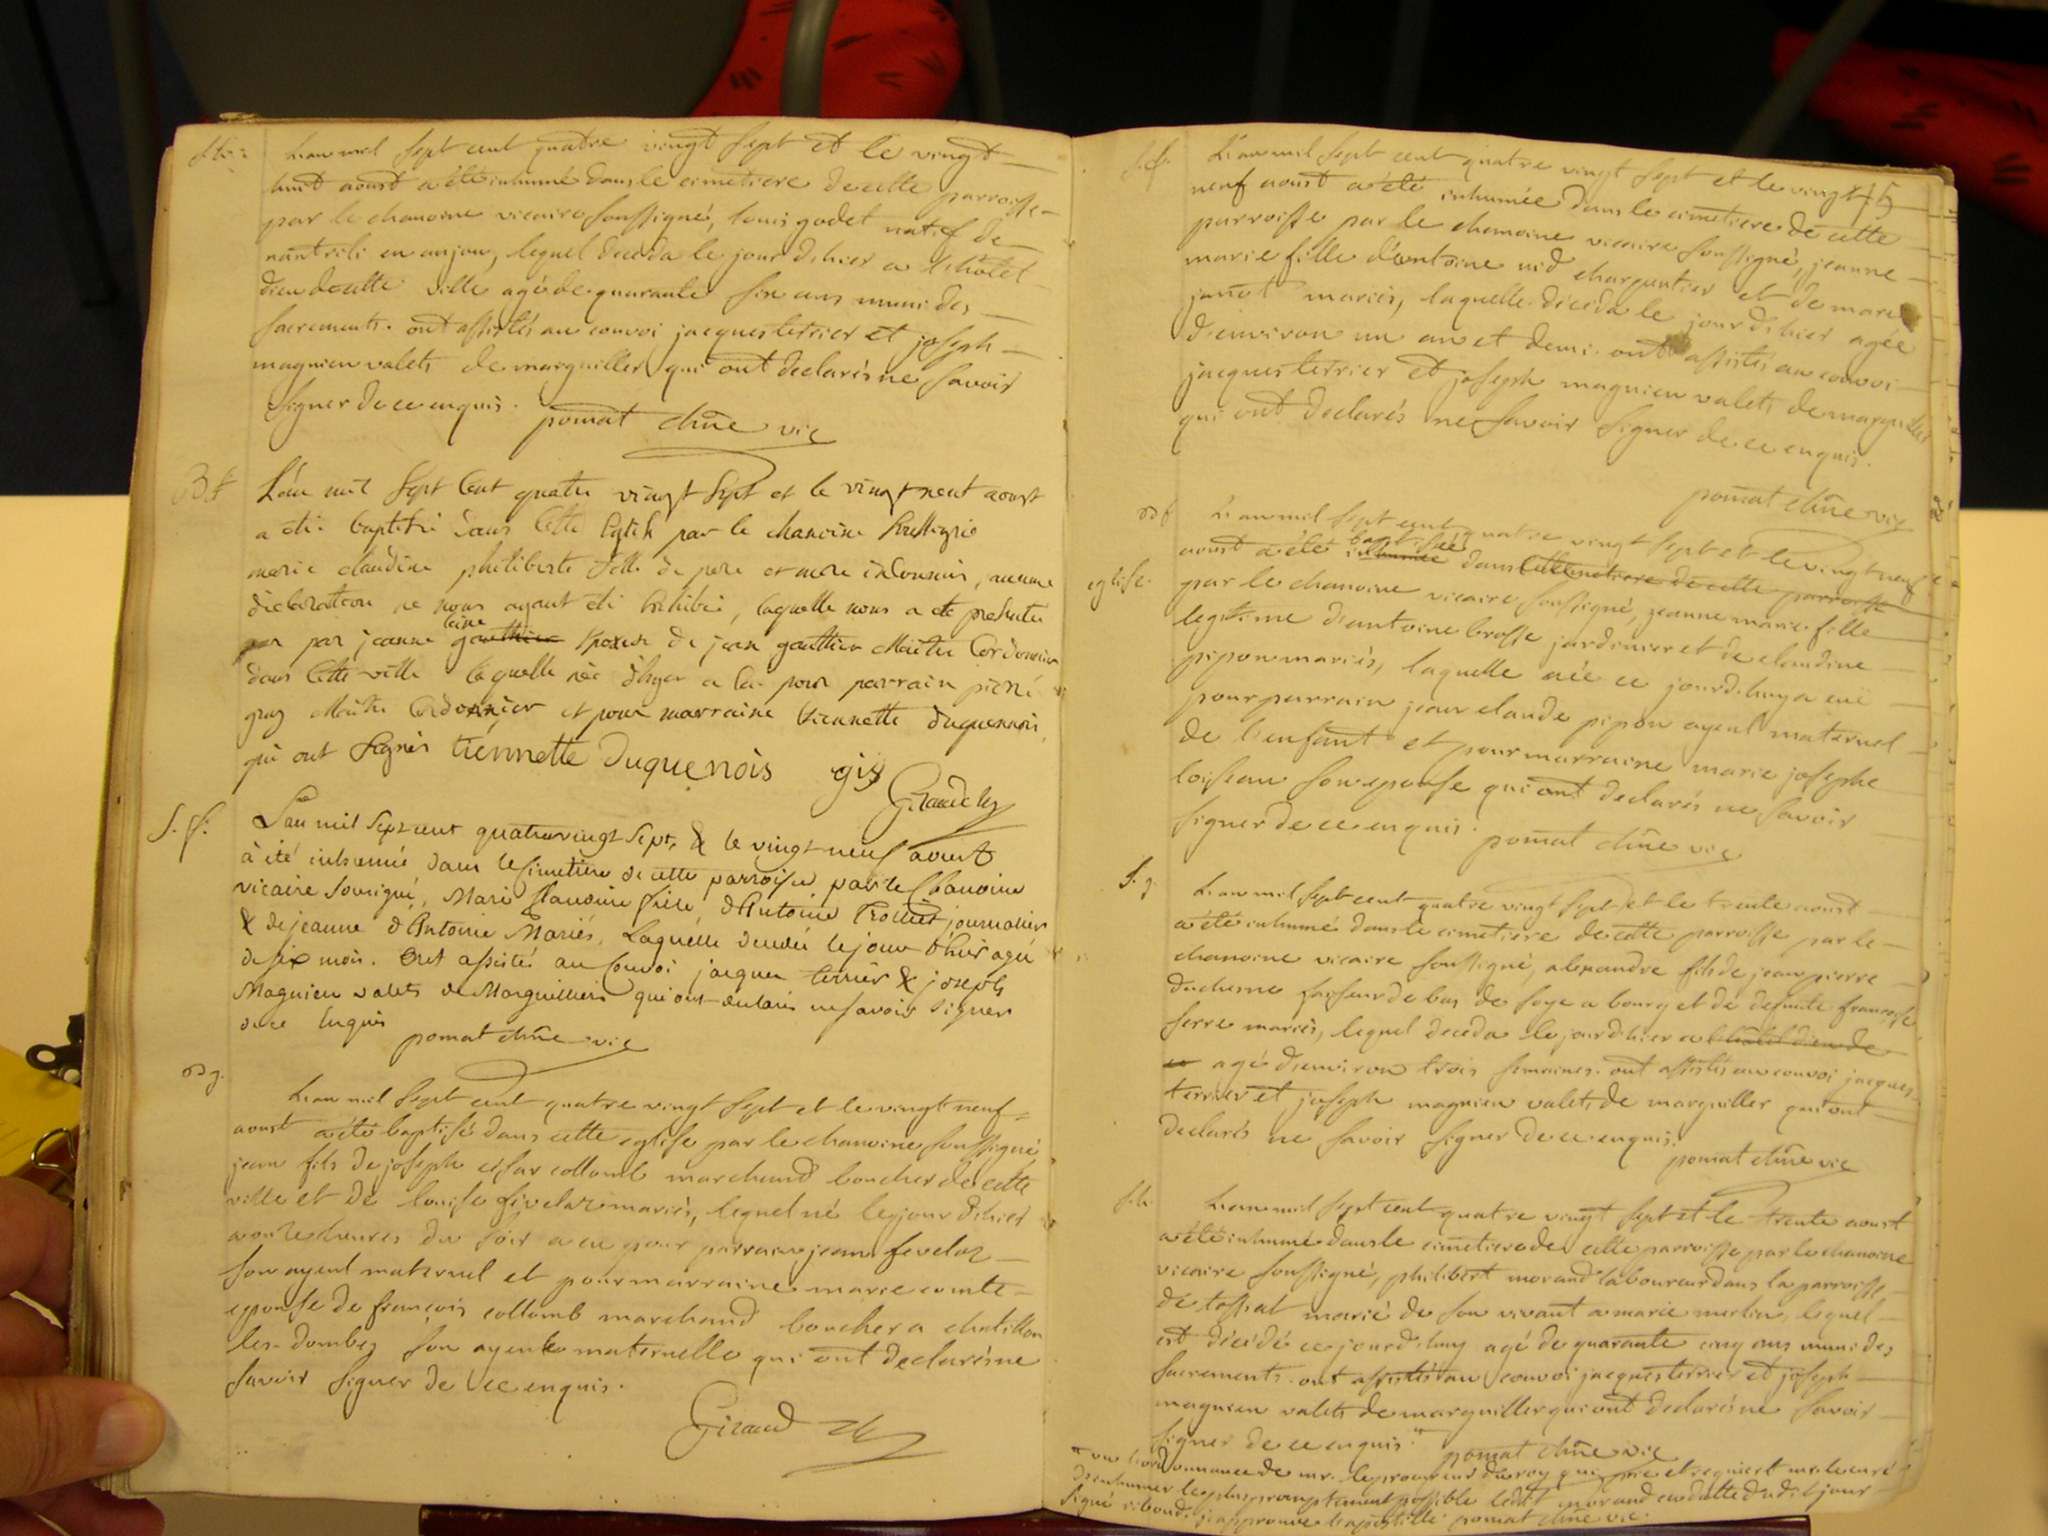 S.h.
L'an mil sept cent quatre vingt sept et le vingt
huit aoust a été inhumé dans le cimetiere de cette parroisse
par le chanoine vicaire soussigné, louis godet natif de
en anjou, lequel deceda le jour d'hier a l'hôtel
dieu de cette ville agé de quarante six ans muni des
sacrements. ont assistés au convoi jacques terrier et joseph
magnien valets de marguiller qui ont declarés ne savoir
signer de ce enquis. pomat chne vic
B f
L'an mil sept Cent quatre vingt Sept et le vingt neuf aoust
a été baptisée dans Cette Eglise par le chanoine Soussigné
marie claudine philiberte fille de pere et mere inconnus, aucune
declaration ne nous ayant été Exhibée, laquelle nous a été presentée
par jeanne gauthier Epouse de jean gauthier Maitre Cordonnier
dans Cette ville laquelle née d'hyer a eu pour parrain pierre
guy Maitre Cordonnier et pour marraine tiennette duquennois,
qui ont Signés tiénnette Duquenois giy
Giraud ch
S. f.
L'an mil sept cent quatrevingt sept, & le vingt neuf aoust
à été inhumée dans le Cimetiere de cette parroisse par le Chanoine
vicaire sousigné, Marie Claudine fille d'Antoine journalier
& de jeanne d'Antoine Mariés, Laquelle decedée le jour d'hier agée
de six mois. Ont assisté au Convoi jacque terrier & joseph
Magnien valets de Marguilliers qui ont declaré ne savoir signer
de ce Enquis pomat chne vic
B g.
L'an mil sept cent quatre vingt sept et le vingt neuf
aoust a été baptisé dans cette eglise par le chanoine soussigné
jean fils de joseph césar collomb marchand boucher de cette
ville et de louise fevelaz mariés, lequel né le jour d'hier
a onze heures du soir a eu pour parrain jean fevelaz
son ayeul maternel et pour marraine marie comte
epouse de françois collomb marchand boucher a chatillon
les dombes son ayeule maternelle qui ont declarés ne
savoir signer de ce enquis.
Giraud ch
S. f.
L'an mil sept cent quatre vingt sept et le vingt 75
neuf aoust a été inhumée dans le cimetiere de cette
parroisse par le chanoine vicaire soussigné, jeanne
marie fille d'antoine nid charpentier et de marie
janet mariés, laquelle deceda le jour d'hier agée
d'environ un an et demi. ont assistés au convoi
jacques terrier et joseph magnien valets de marguiller
qui ont declarés ne savoir signer de ce enquis.
pomat chne vic
B f
L'an mil sept cent quatre vingt sept et le vingt neuf
baptisée
aoust a été inhumée dans cette cimetiere de cette parroisse
eglise
par le chanoine vicaire soussigné, jeanne marie fille
legitime d'antoine brosse jardinier et de claudine
pipon mariés, laquelle née ce jourd'huy a eue
pour parrain jean claude pipon ayeul maternel
de l'enfant et pour marraine marie josephe
loiseau son epouse qui ont declarés ne savoir
signer de ce enquis. pomat chne vic
S. g.
L'an mil sept cent quatre vingt sept et le trente aoust
a été inhumé dans le cimetiere de cette parroisse par le
chanoine vicaire soussigné, alexandre fils de jean pierre
duchesne faiseur de bas de soye a bourg et de defunte françoise
serre mariés, lequel deceda le jour d'hier a l'hôtel dieu de
ce agé d'environ trois semaines. ont assistés au convoi jacques
terrier et joseph magnien valets de marguiller qui ont
declarés ne savoir signer de ce enquis.
pomat chne vic
S.h.
L'an mil sept cent quatre vingt sept et le trente aoust
a été inhumé dans le cimetiere de cette parroisse par le chanoine
vicaire soussigné, philibert morand laboureur dans la parroisse
de tossiat marié de son vivant a marie merlin, lequel
est décédé ce jourd'huy agé de quarante cinq ans muni des
sacrements. ont assistés au convoi jacques terrier et joseph
magnien valets de marguiller qui ont declarés ne savoir
signer de ce enquis." pomat chne vic
" vu l'ordonnance de mr. le procureur du roy qui prie et requiert mr. le curé
d'inhumer le plus promptement possible ledit morand en datte dudit jour
signé riboud. j'approuve l'apostille pomat chne vic.